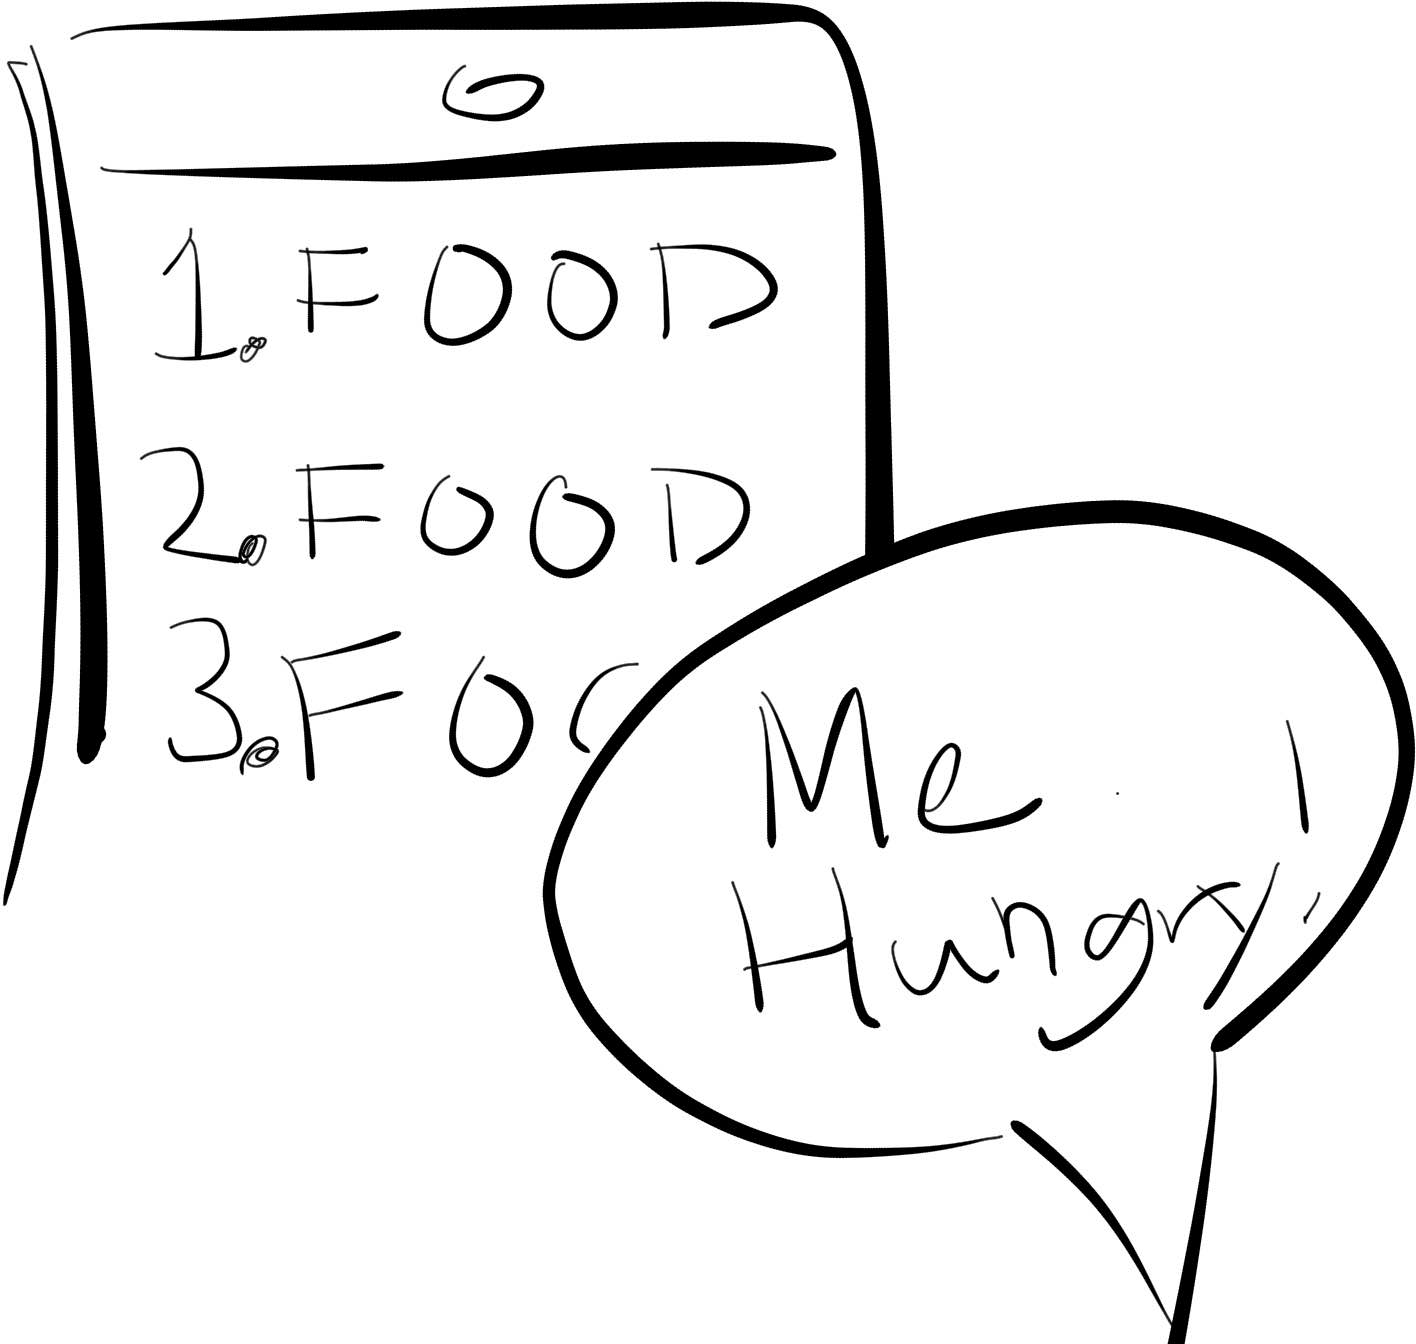 1. FOOD
2. FOOD
3. FOO
Me
Hungry!